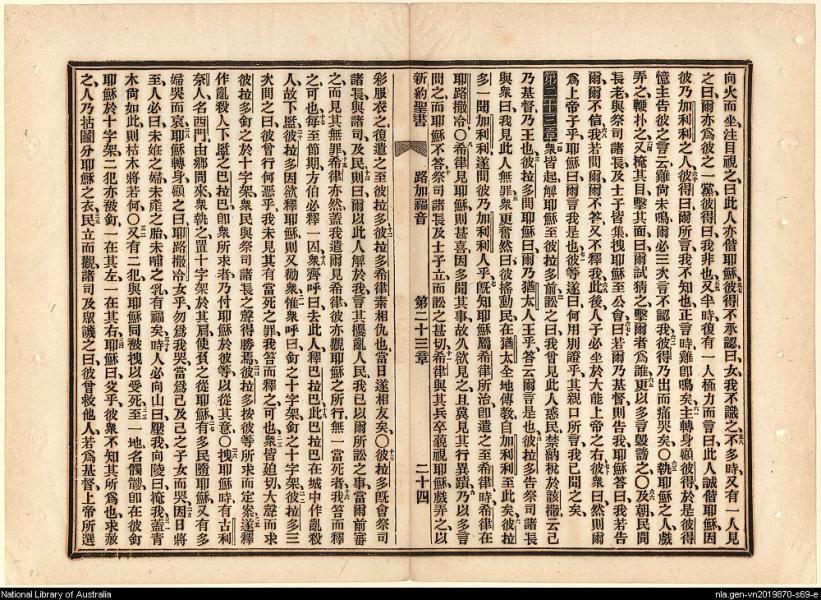 向火而坐注目視之曰此人亦偕耶穌彼得不承認曰女我不識之不多時又有一人見
之曰爾亦爲彼之一黨彼得曰我非也又半時復有一人極力而言曰此人誠偕耶穌因
彼乃加利利之人彼得曰爾所言我不知也正言時雞卽鳴矣主轉身顧彼得於是彼得
憶主告彼之言云雞尚未鳴爾必三次言不認我彼得乃出而痛哭矣〇執耶穌之人戲
弄之鞭朴之又掩其目擊其面曰爾試猜之擊爾者爲誰更以多言毀謗之〇及朝民間
長老與祭司諸長及士子皆集拽耶穌至公會曰若爾乃基督則告我耶穌答曰我若告
爾爾不信我若問爾爾不答又不釋我此後人子必坐於大能上帝之右彼衆曰然則爾
爲上帝子乎耶穌曰爾言我是也彼等遂曰何用別證乎其親口所言我已聞之矣
第二十三章衆皆起解耶穌至彼拉多前訟之曰我曾見此人惑民禁納稅於該撒云己
乃基督乃王也彼拉多問耶穌曰爾乃猶太人王乎答云爾言是也彼拉多告祭司諸長
與衆曰我見此人無罪衆更奮然曰彼搖動民在猶太全地傳敎自加利利至此矣彼拉
多一聞加利利遂問彼乃加利利人乎旣知耶穌屬希律所治卽遣之至希律時希律在
耶路撒冷〇希律見耶穌則甚喜因多聞其事故久欲見之且冀見其行異蹟乃以多言
問之而耶穌不答祭司諸長及士子立而訟之甚切希律與其兵卒藐視耶穌戲弄之以
新約聖書 路加福音 第二十三章 二十四
彩服衣之復遣之至彼拉多彼拉多希律素相仇也當日遂相友矣〇彼拉多旣會祭司
諸長與諸司及民則曰爾以此人解於我言其擾亂人民我已以爾所訟之事當爾前審
之而見其無罪希律亦然蓋我遣爾見希律彼亦觀耶穌之所行無一當死者我笞而釋
之可也每至節期方伯必釋一囚衆齊呼曰去此人釋巴拉巴此巴拉巴在城中作亂殺
人故下監彼拉多因欲釋耶穌則又勸衆惟衆呼曰釘之十字架釘之十字架彼拉多三
次問之曰彼曾行何惡乎我未見其有當死之罪我笞而釋之可也衆皆廹切大聲而求
彼拉多釘之於十字架衆民與祭司諸長之聲得勝焉彼拉多按彼等所求而定案遂釋
作亂殺人下監之巴拉巴卽衆所求者乃付耶穌於彼等以從其意〇拽耶穌時有古利
奈人名西門由鄉間來衆執之置十字架於其肩使負之從耶穌有多民隨耶穌又有多
婦哭而哀耶穌轉身顧之曰耶路撒冷女乎勿爲我哭當爲己及己之子女而哭因日將
至人必曰未姙之婦未產之胎未哺之乳有福矣時人必向山曰壓我向陵曰掩我蓋靑
木尙如此則枯木將若何〇又有二犯與耶穌同被拽以受死至一地名髑髏卽在彼釘
耶穌於十字架二犯亦被釘一在其左一在其右耶穌曰父乎彼衆不知其所爲也求赦
之人乃拈鬮分耶穌之衣民立而觀諸司及衆譏之曰彼曾救他人若爲基督上帝所選
National Library of Australia
nla.gen-vn2019870-s69-e